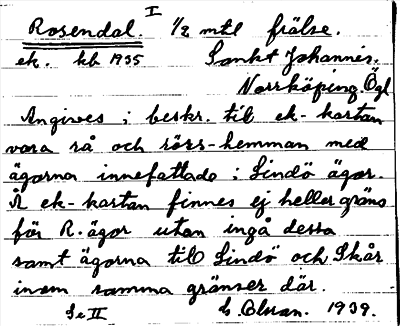 I
Rosendal. 1/2 mtl frälse.
ek. kb 1935 Sankt Johannis.
Norrköping. Ögl
Angives i beskr. til ek-kartan
vara rå och rörs-hemman med
ägorna innefattade i Lindö ägor.
Å ek-kartan finnes ej heller gräns
för R. ägor utan ingå dessa
samt ägorna til Lindö och Skår
inom samma gränser där.
Se II 1939.